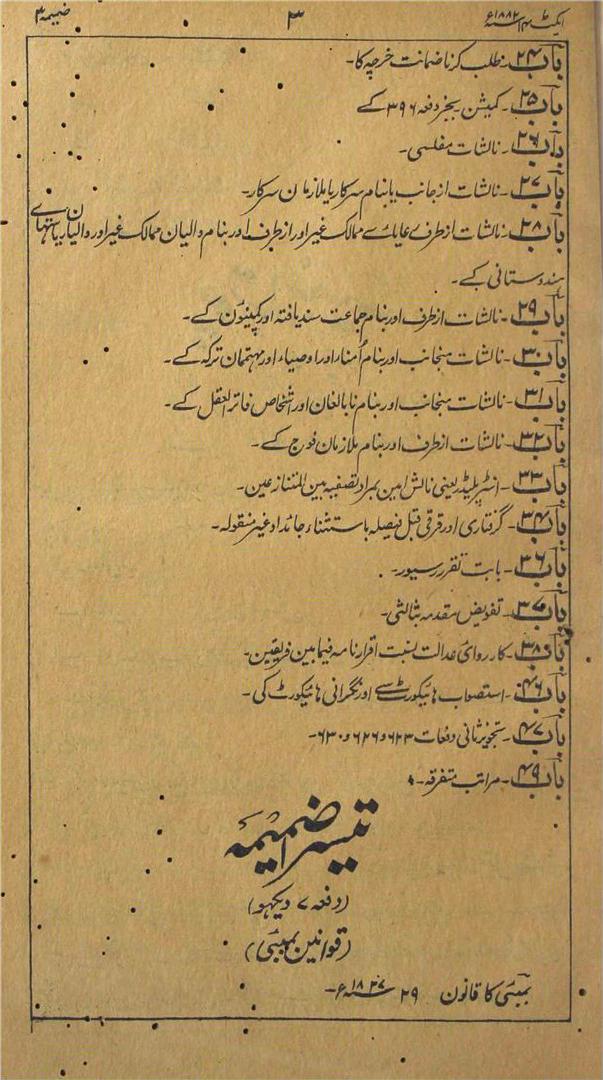 ایکٹ ۱۴ ۱۸۸۲ء ۳ ضمیمہ ۳
باب ۲۴۔ طلب کرنا ضمانت خرچہ کا۔
باب ۲۵۔ کمیشن بجز دفعہ ۳۹۶ کے
باب ۲۶۔ نالشات مفلسی۔
باب ۲۷۔ نالشات از جانب یا بنام سرکار یا ملازمان سرکار۔
باب ۲۸۔ نالشات از طرف رعایائے ممالک غیر اور از طرف اور بنام والیان ممالک غیر اور والیان ریاستہائے
ہندوستانی کے۔
باب ۲۹۔ نالشات از طرف اور بنام جماعت سند یافتہ اور کمپنیوں کے۔
باب ۳۰۔ نالشات منجانب اور بنام اُمناء اور اوصیاء اور مہتممان ترکہ کے۔
باب ۳۱۔ نالشات منجانب اور بنام نابالغان اور اشخاص فاتر العقل کے۔
باب ۳۲۔ نالشات از طرف اور بنام ملازمان فوج کے۔
باب ۳۳۔ انٹرپلیڈر یعنی نالش امین بمراد تصفیہ بین المتنازعین۔
باب ۳۴۔ گرفتاری اور قرقی قبل فیصلہ باستثناء جائداد غیر منقولہ۔
باب ۳۶۔ بابت تقرر رسیور۔
باب ۳۷۔ تفویض مقدمہ بثالثی۔
باب ۳۸۔ کارروائی عدالت بنسبت اقرار نامہ فیمابین فریقین۔
باب ۴۶۔ استصواب ہائیکورٹ سے اور نگرانی ہائیکورٹ کی۔
باب ۴۷۔ تجویز ثانی دفعات ۶۲۳ و ۶۲۶ و ۶۳۰۔
باب ۴۹۔ مراتب متفرقہ۔
تیسرا ضمیمہ
(دفعہ ۷ دیکھو)
(قوانین بمبئی)
بمبئی کا قانون ۲۹ ۱۸۲۷ء۔